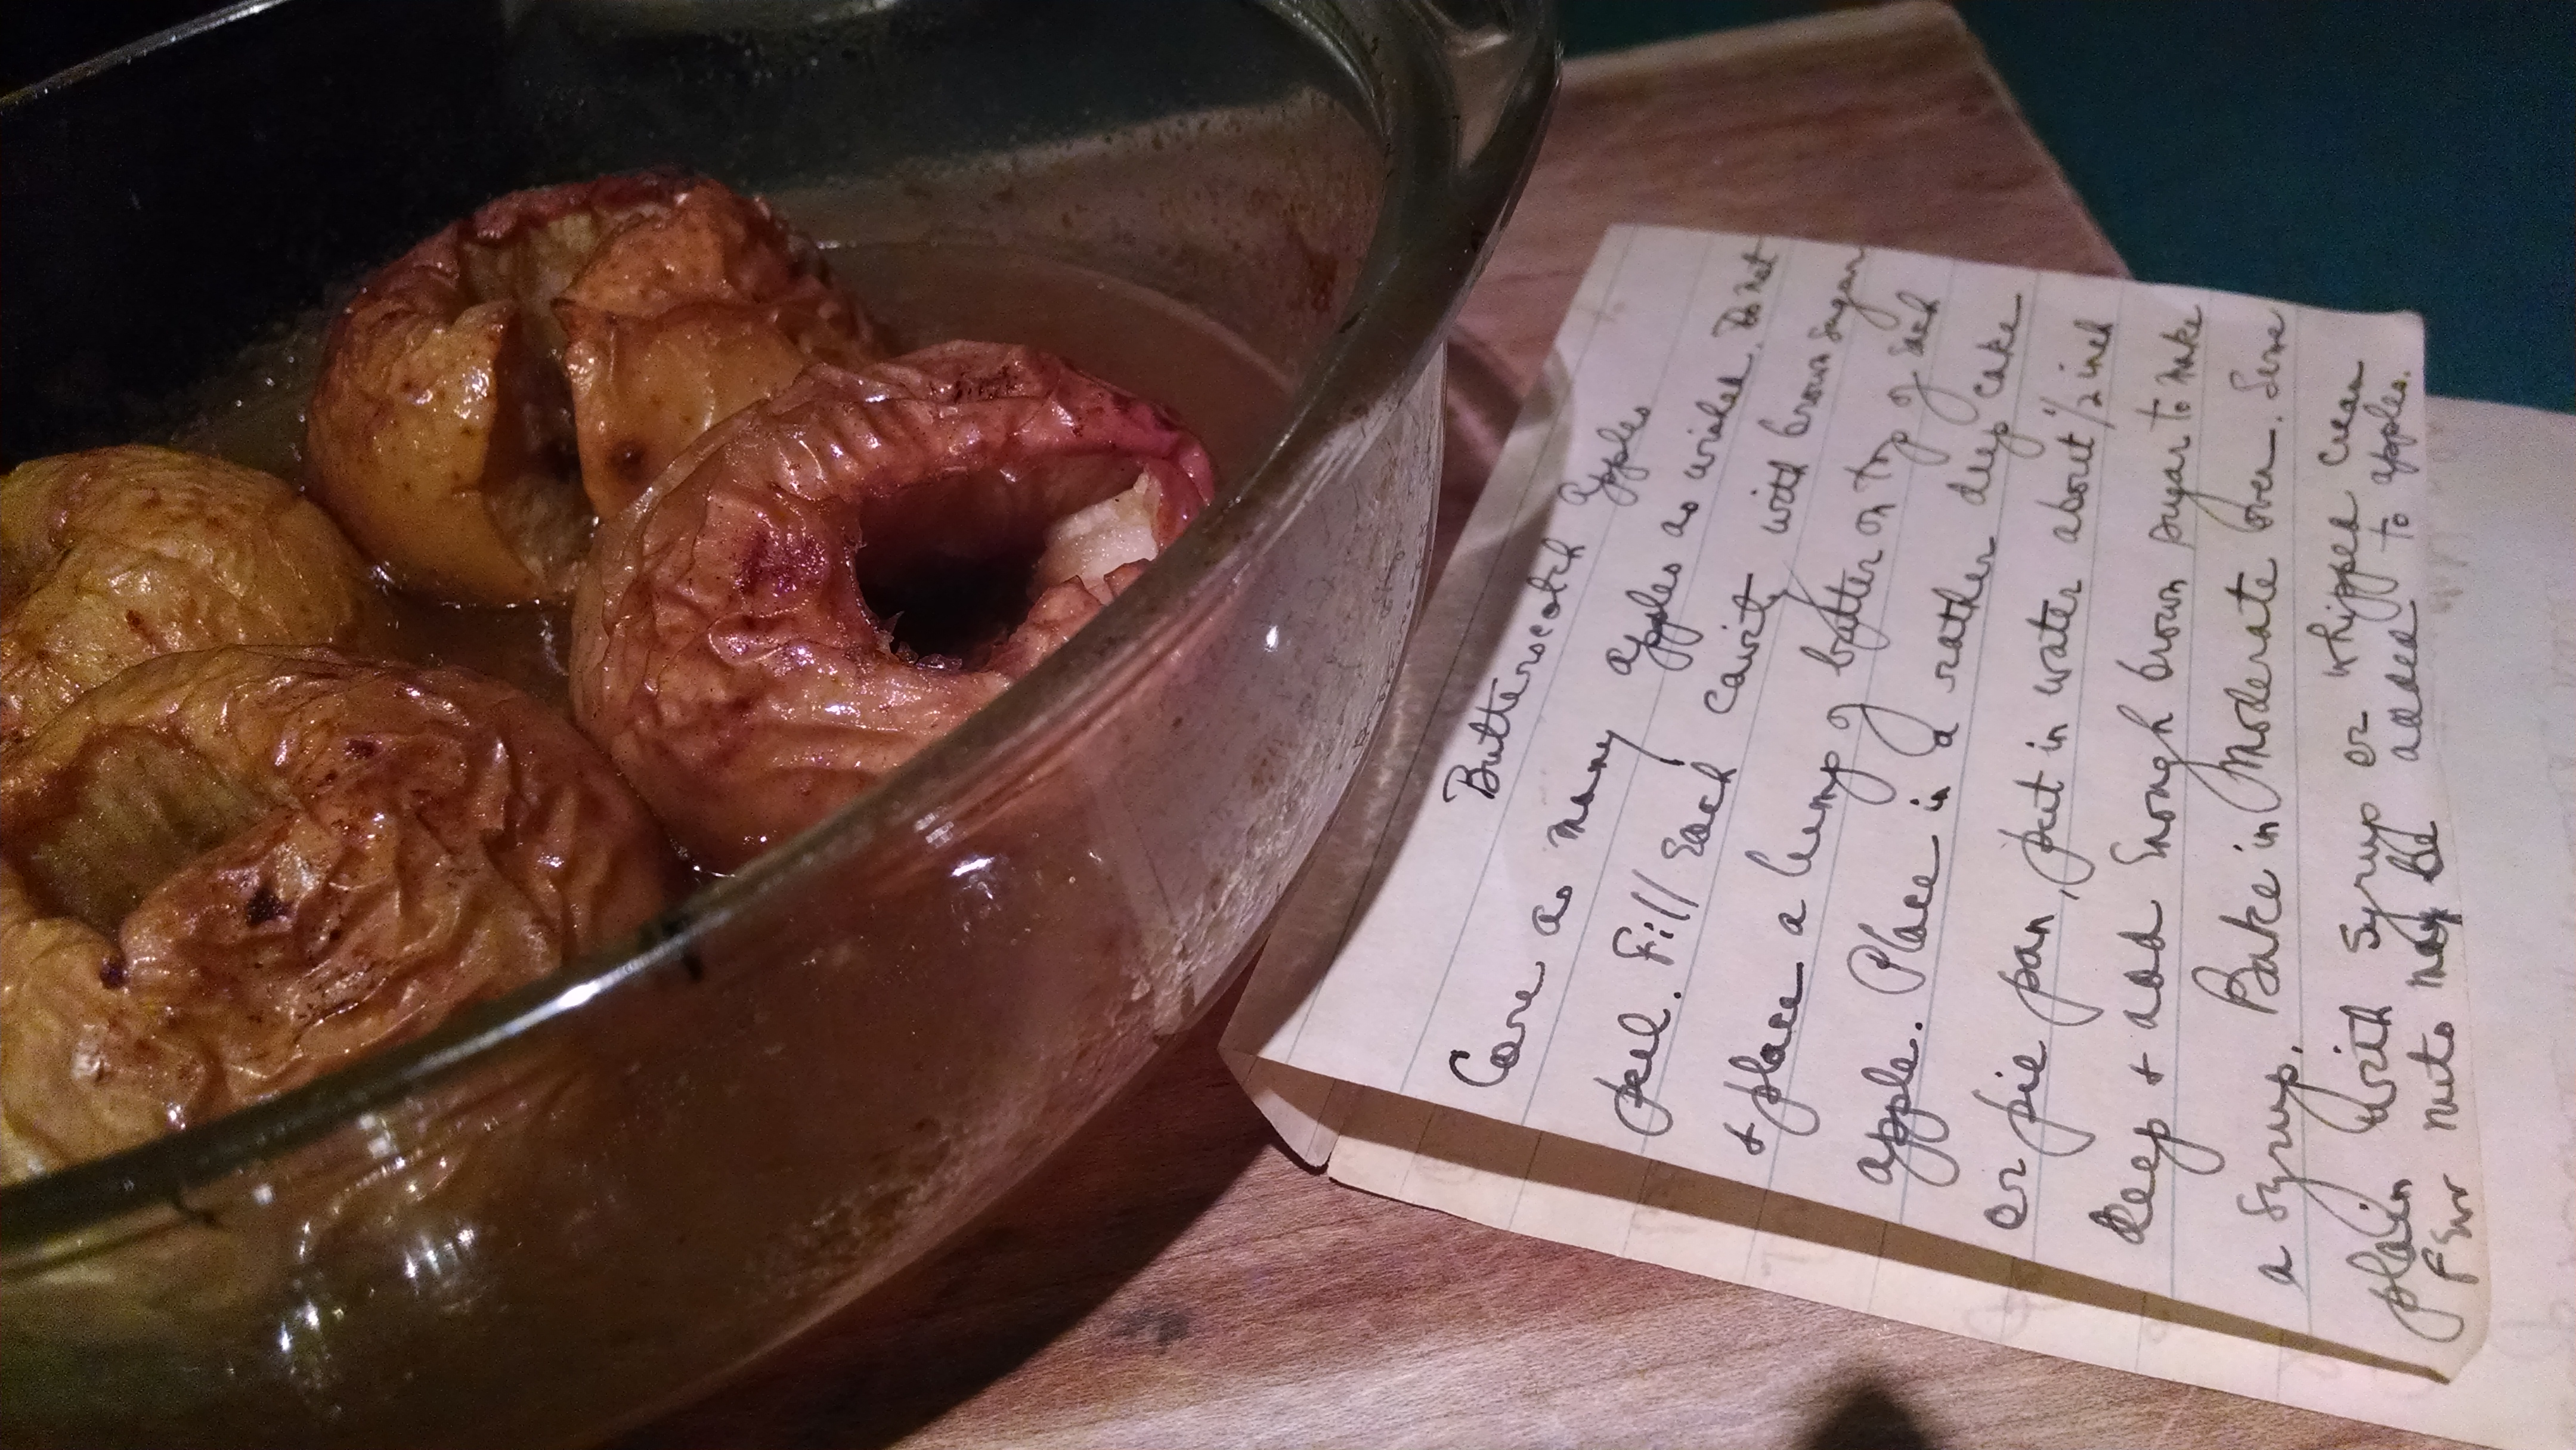 Butterscotch Apples
Core as many apples as wished. Do not
peel. Fill Each cavity with brown sugar
+ place a lump of butter on top of Each
apple. Place in a rather deep cake
or pie pan, put in water about 1/2 inch
deep + add Enough brown sugar to make
a syrup. Bake in Moderate oven. Serve
plain with syrup or whipped cream
Few nuts may be added to apples.